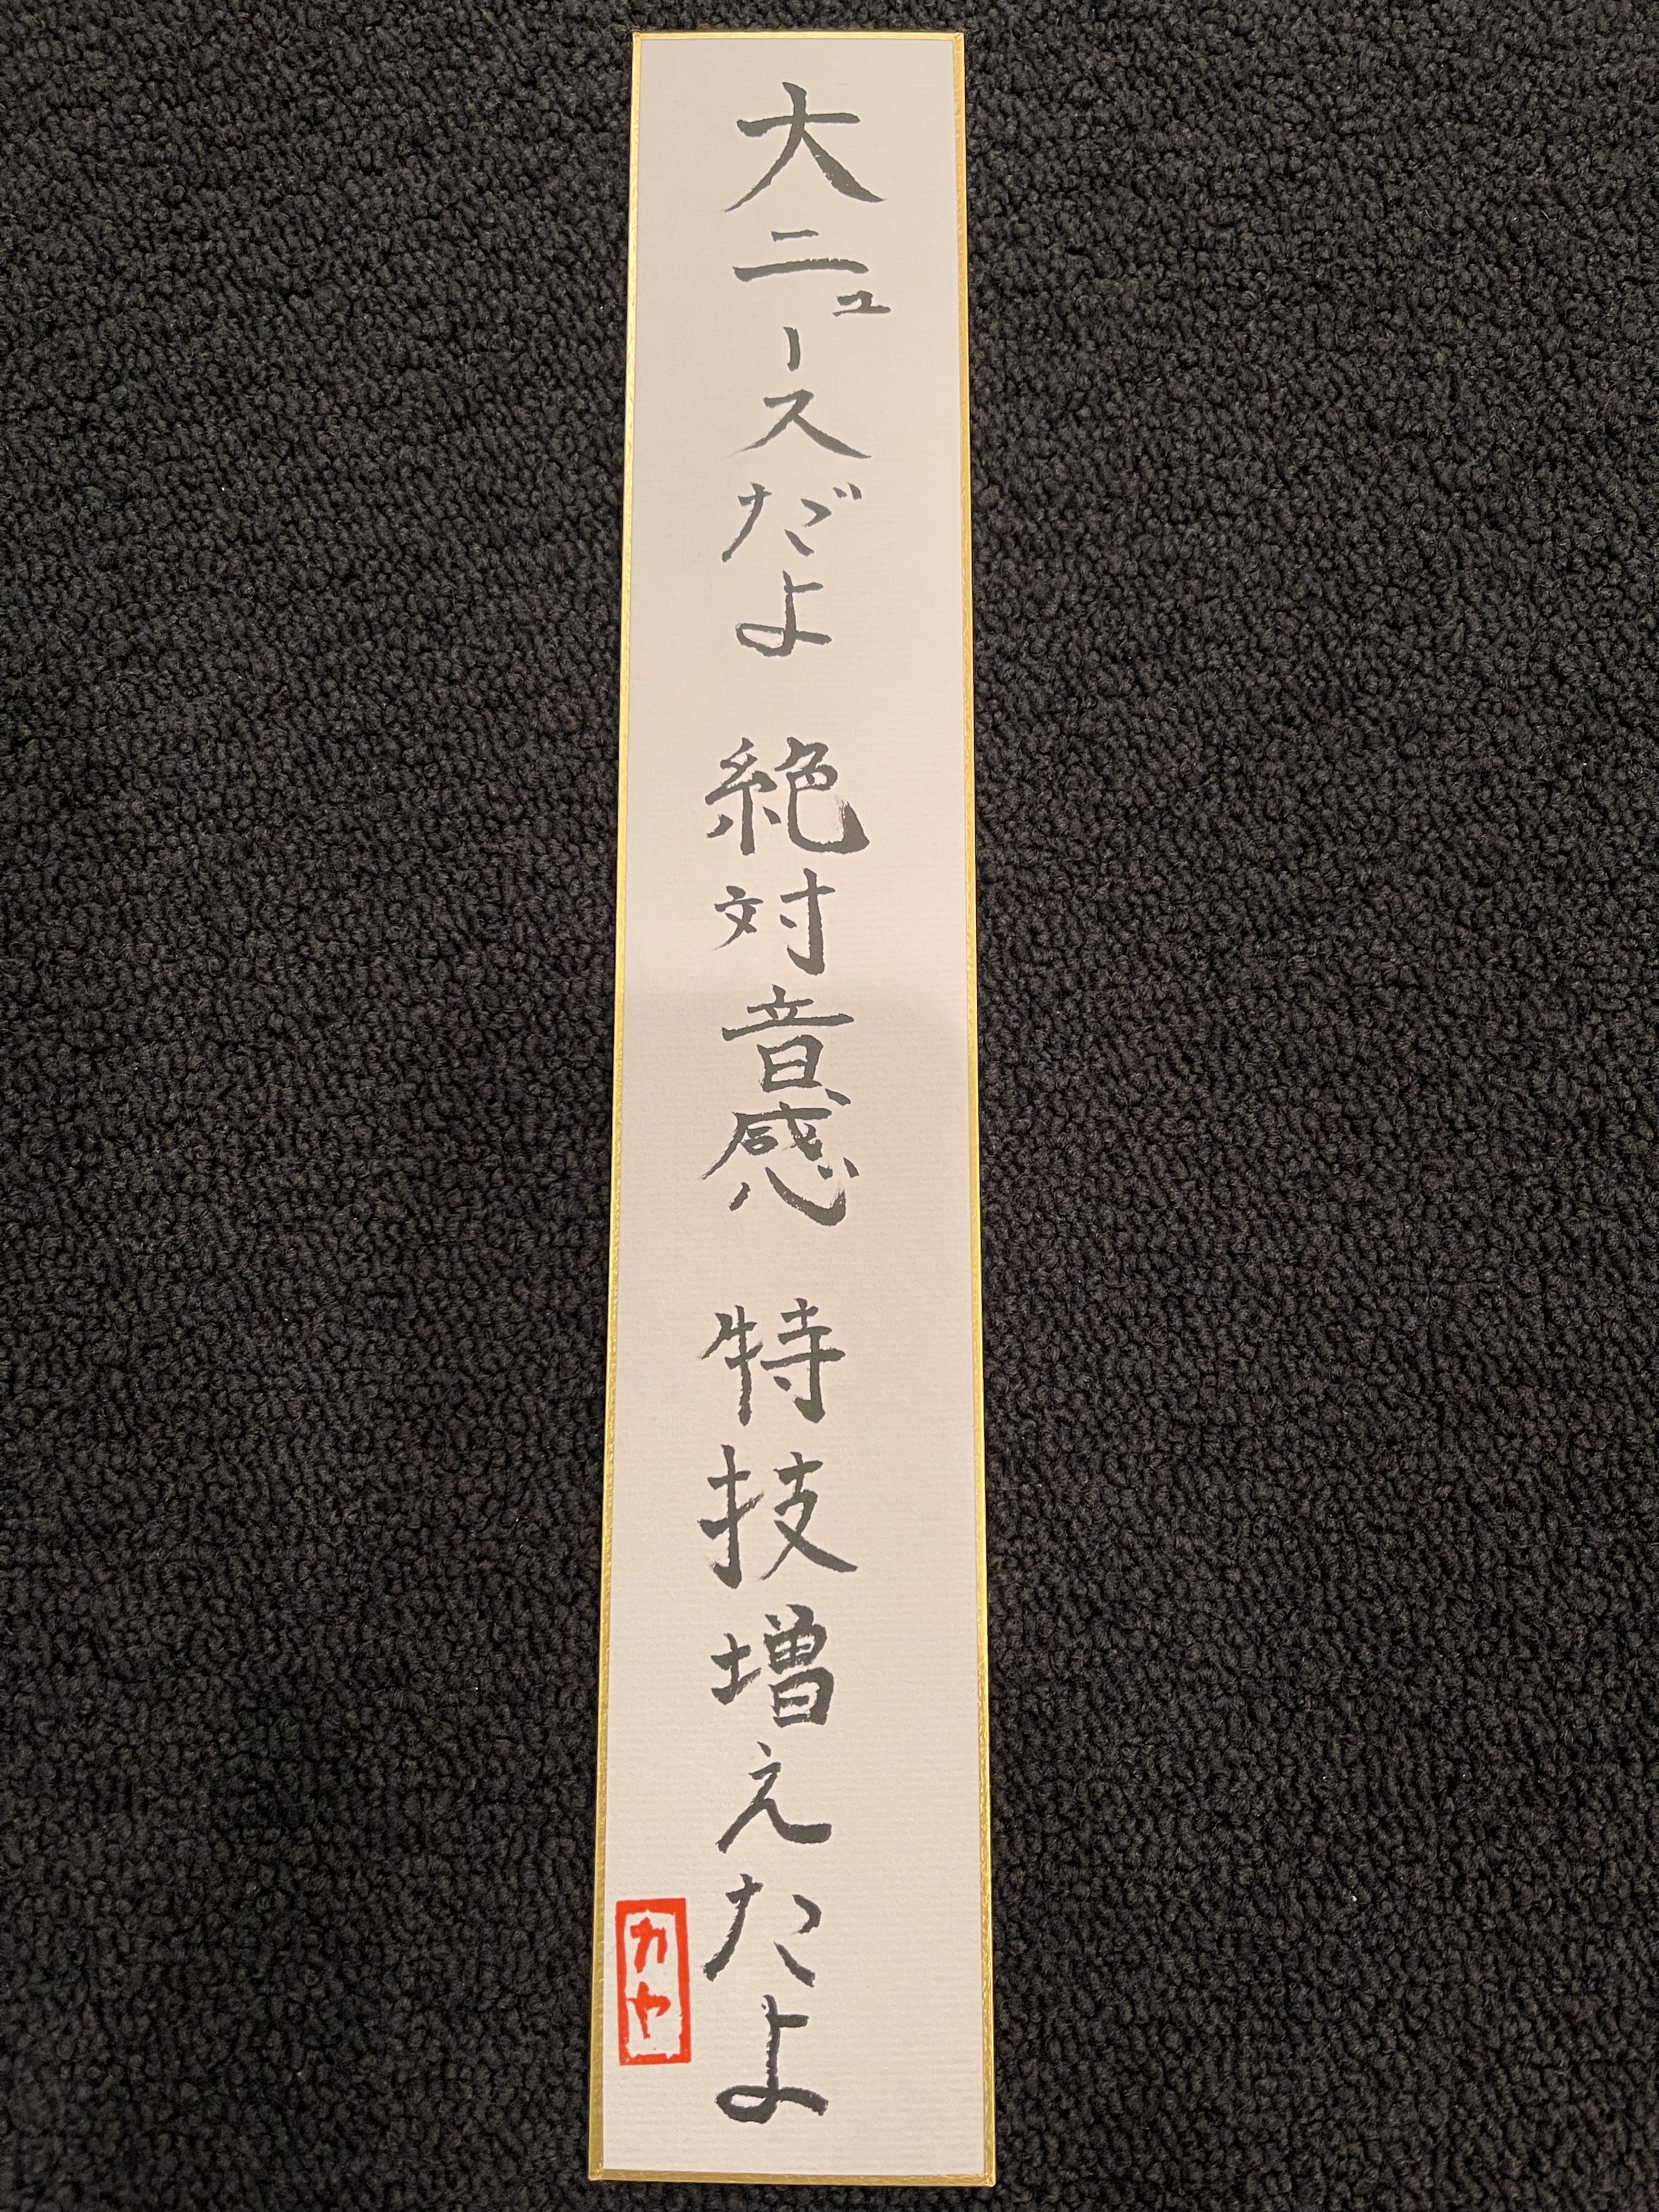 大ニュースだよ 絶対音感 特技増えたよ
カヤ